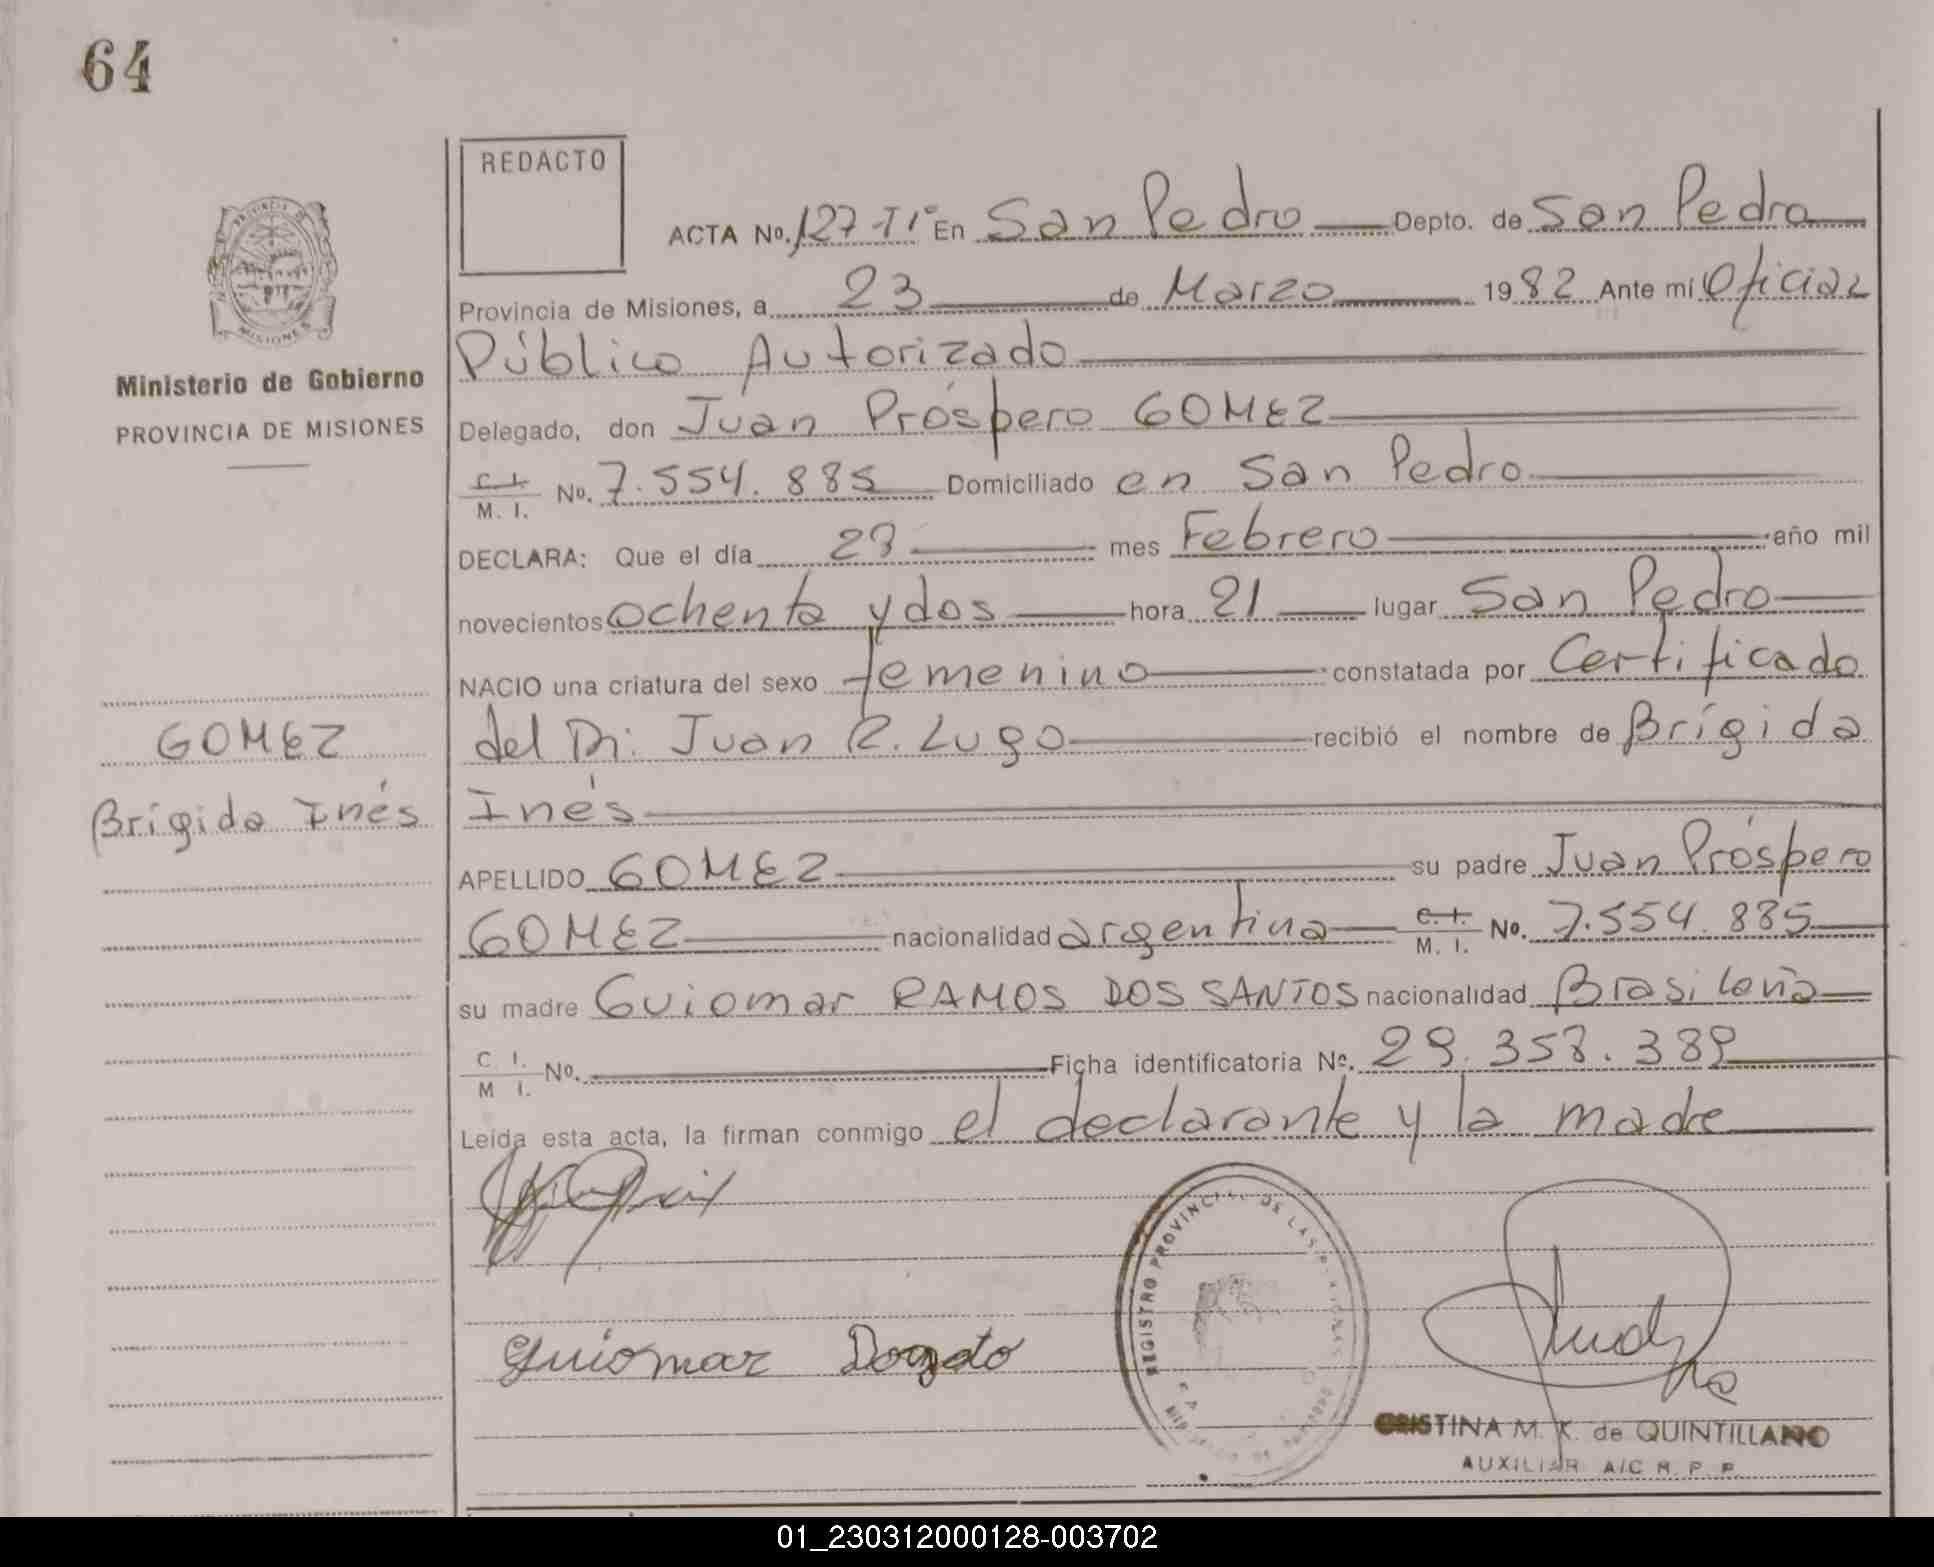 64
REDACTO
ACTA No. 127 TIº En San Pedro Depto. de San Pedro
Provincia de Misiones, a 23 de Marzo 1982 Ante mí Oficial
Público Autorizado
Delegado, don Juan Próspero GOMEZ
C. I. / M. I. No. 7.554.885 Domiciliado en San Pedro
DECLARA: Que el día 23 mes Febrero año mil
novecientos ochenta y dos hora 21 lugar San Pedro
NACIO una criatura del sexo femenino constatada por Certificado
del Dr. Juan R. Lugo recibió el nombre de Brígida
Inés
APELLIDO GOMEZ su padre Juan Próspero
GOMEZ nacionalidad argentina C. I. / M. I. No. 7.554.885
su madre Guiomar RAMOS DOS SANTOS nacionalidad Brasileña
C. I. / M. I. No. Ficha identificatoria Nº. 29.358.389
Leída esta acta, la firman conmigo el declarante y la madre
Guiomar
REGISTRO PROVINCIAL DE LAS
CRISTINA M. K. de QUINTILLANO
AUXILIAR A/C R. P. P.
PROVINCIA DE
MISIONES
Ministerio de Gobierno
PROVINCIA DE MISIONES
GOMEZ
Brígida Inés
01_230312000128-003702